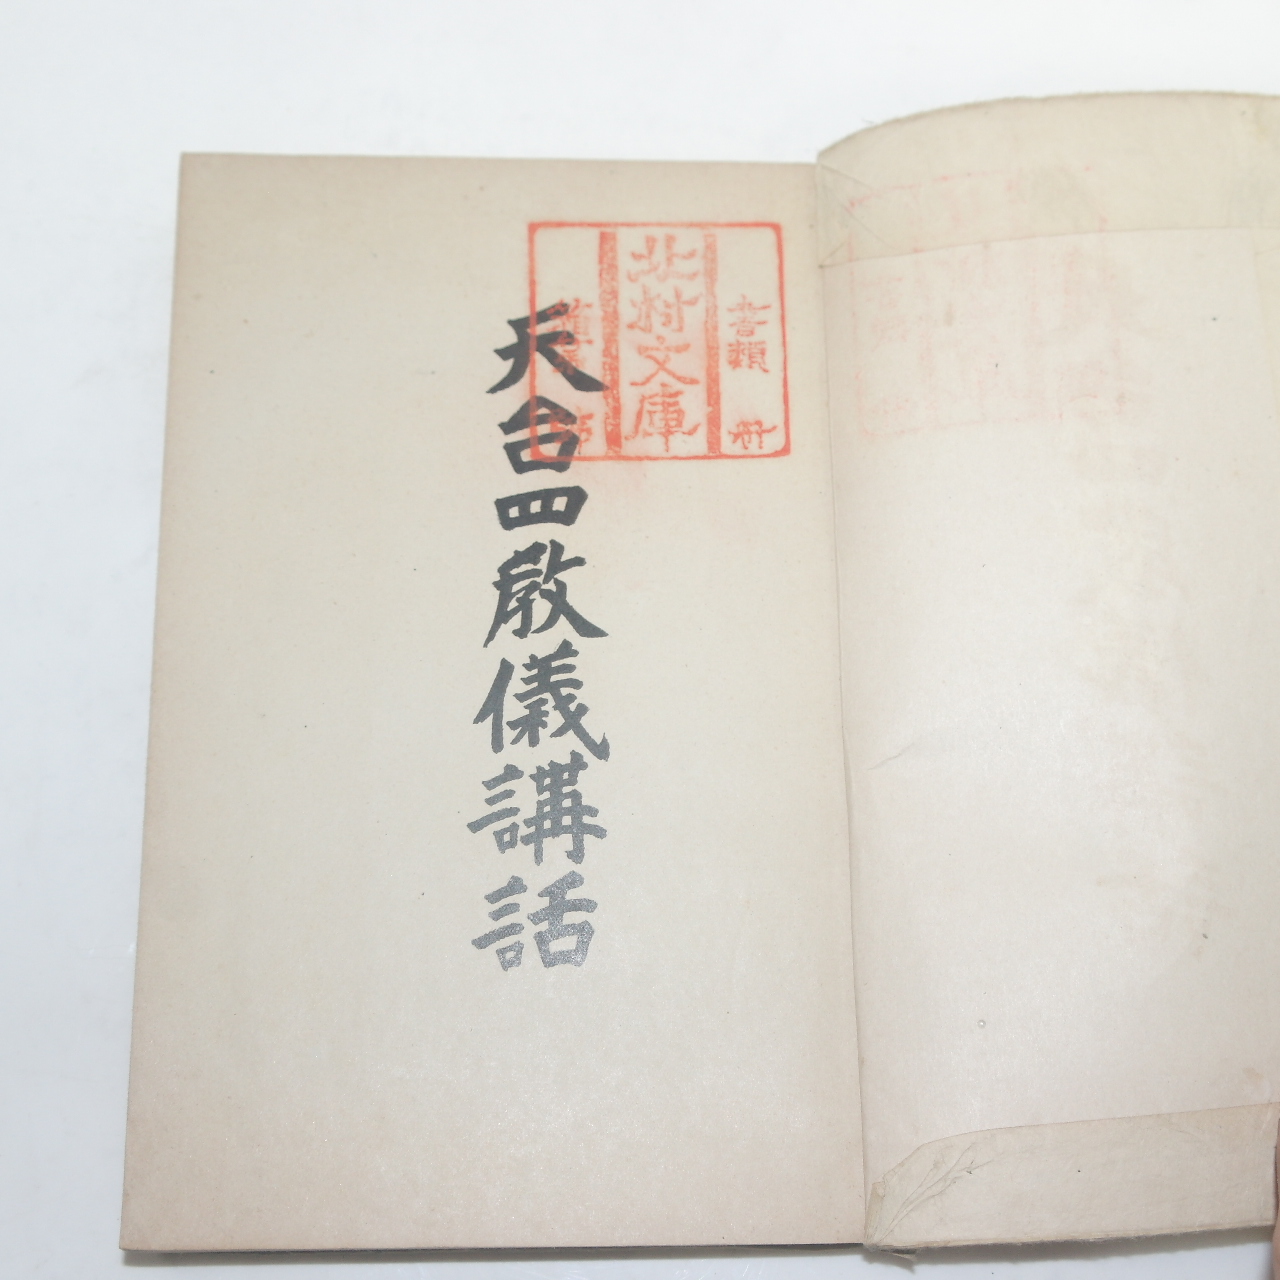 書類 冊
北村文庫
部
天台四教儀講話